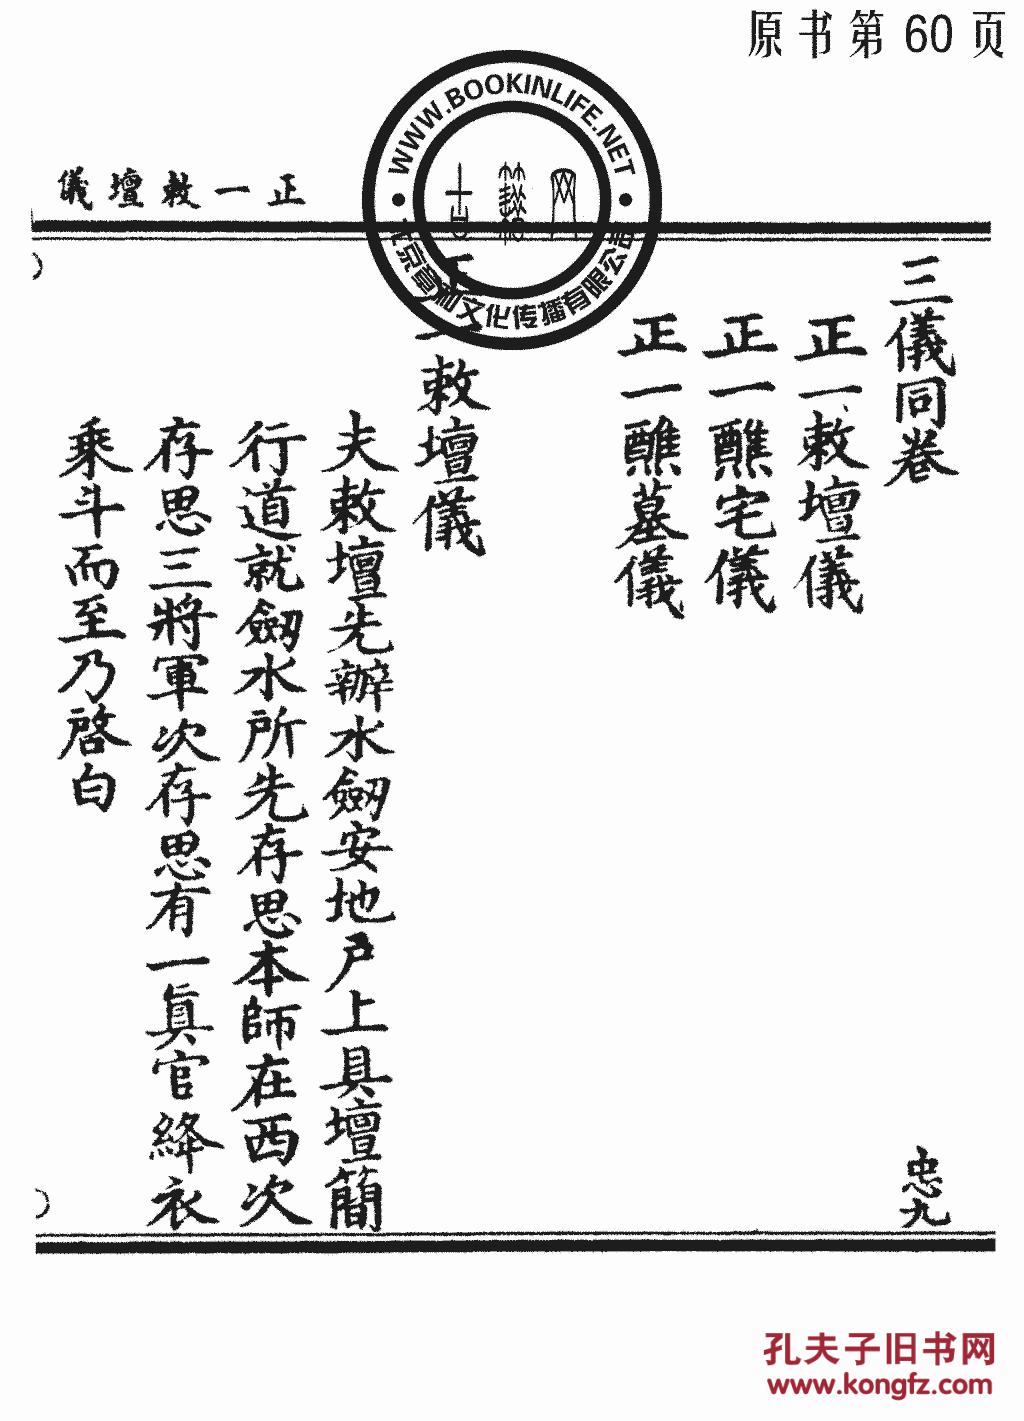 原书第60页
正一敕壇儀
WWW.BOOKINLIFE.NET
文化传播有限公司
三儀同卷
忠九
正一敕壇儀
正一醮宅儀
正一醮墓儀
正一敕壇儀
夫敕壇先辦水劒安地戶上具壇簡
行道就劒水所先存思本師在西次
存思三將軍次存思有一眞官絳衣
乘斗而至乃啓白
孔夫子旧书网
www.kongfz.com